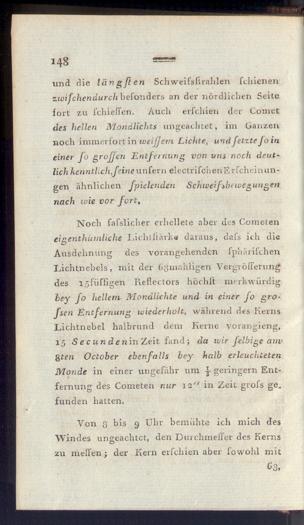 148
und die längſten Schweifsſtrahlen ſchienen
zwiſchendurch besonders an der nördlichen Seite
fort zu ſchieſſen. Auch erſchien der Comet
des hellen Mondlichts ungeachtet, im Ganzen
noch immerfort in weiſſem Lichte, und ſetzte ſo in
einer ſo groſſen Entfernung von uns noch deut-
lich kenntlich, ſeine unſern electriſchen Erſcheinun-
gen ähnlichen ſpielenden Schweifsbewegungen
nach wie vor fort.
Noch faſslicher erhellete aber des Cometen
eigenthümliche Lichtſtärke daraus, daſs ich die
Ausdehnung des vorangehenden ſphäriſchen
Lichtnebels, mit der 63mahligen Vergröſserung
des 15füſſigen Reflectors höchſt merkwürdig
bey ſo hellem Mondlichte und in einer ſo gro-
ſsen Entfernung wiederholt, während des Kerns
Lichtnebel halbrund dem Kerne vorangieng,
15 Secunden in Zeit fand; da wir ſelbige am
8ten October ebenfalls bey halb erleuchteten
Monde in einer ungefähr um ⅓ geringern Ent-
fernung des Cometen nur 12″ in Zeit groſs ge-
funden hatten.
Von 8 bis 9 Uhr bemühte ich mich des
Windes ungeachtet, den Durchmeſſer des Kerns
zu meſſen; der Kern erſchien aber ſowohl mit
63.